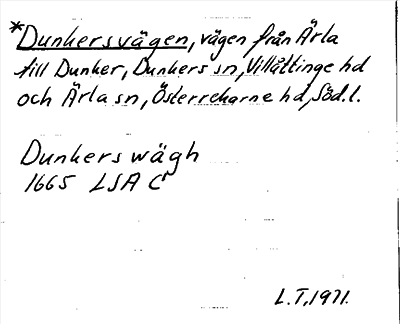 *Dunkersvägen, vägen från Ärla
till Dunker, Dunkers sn, Villåttinge hd
och Ärla sn, Österrekarne hd, Söd.l.
Dunkers wägh
1665 LSA C
L.T, 1971.